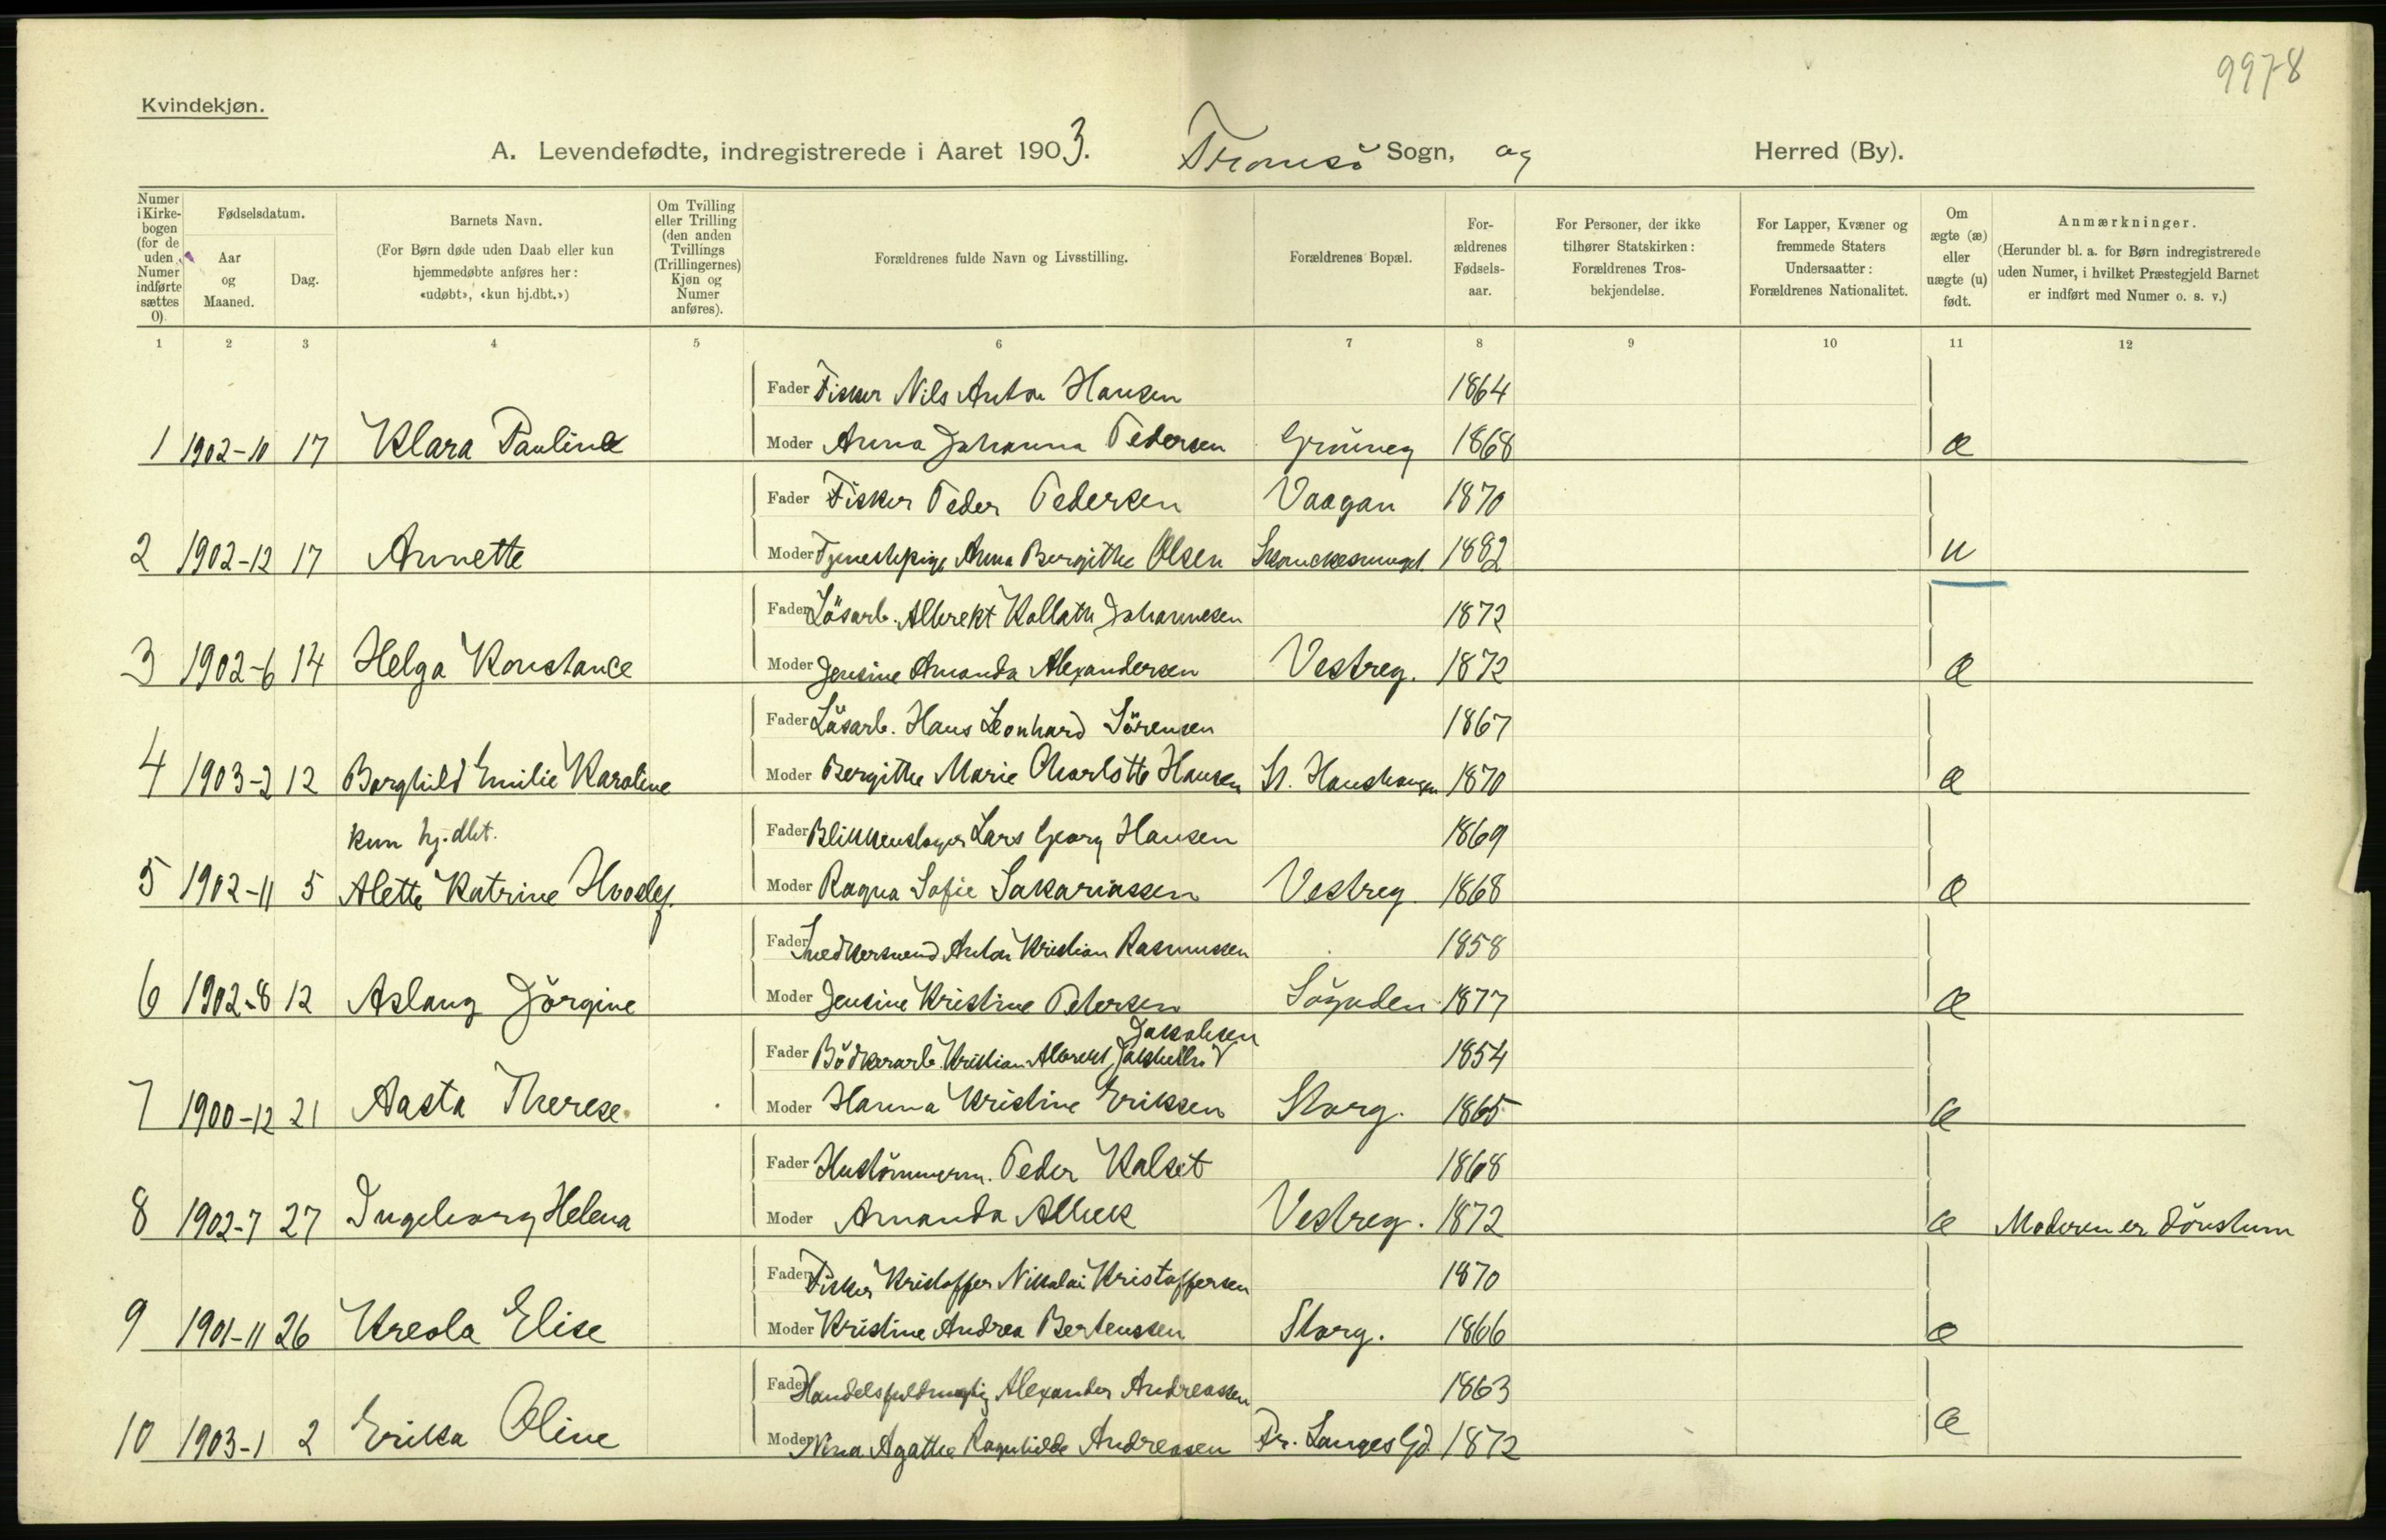 9978
Kvindekjøn.
A. Levendefødte, indregistrerede i Aaret 1903. Tromsö Sogn, og Herred (By).
Numer i Kirkebogen (for de uden Numer indførte sættes 0).
Fødselsdatum.
Aar og Maaned.
Dag.
Barnets Navn.
(For Børn døde uden Daab eller kun hjemmedøbte anføres her: «udøbt», «kun hj.dbt.»)
Om Tvilling eller Trilling (den anden Tvillings (Trillingernes) Kjøn og Numer anføres).
Forældrenes fulde Navn og Livsstilling.
Forældrenes Bopæl.
Forældrenes Fødselsaar.
For Personer, der ikke tilhører Statskirken: Forældrenes Trosbekjendelse.
For Lapper, Kvæner og fremmede Staters Undersaatter: Forældrenes Nationalitet.
Om ægte (æ) eller uægte (u) født.
Anmærkninger.
(Herunder bl. a. for Børn indregistrerede uden Numer, i hvilket Præstegjeld Barnet er indført med Numer o. s. v.)
1 2 3 4 5 6 7 8 9 10 11 12
Fader Fisker Nils Anton Hansen 1864
1 1902-10 17 Klara Pauline Moder Anna Johanna Pedersen Grönneg 1868 æ
Fader Fisker Peder Pedersen Vaagan 1870
2 1902-12 17 Annette Moder Tjenestepige Anna Bergithe Olsen 1882 u
Fader Lösarb. Albrekt Kollath Johannesen 1872
3 1902-6 14 Helga Konstance Moder Jensine Amanda Alexandersen Vestreg. 1872 æ
Fader Lösarb. Hans Leonhard Sörensen 1867
4 1903-2 12 Borghild Emilie Karoline Moder Bergithe Marie Charlotte Hansen St. Hanshaugen 1870 æ
kun hj.dbt. Fader Blikkenslager Lars Georg Hansen 1869
5 1902-11 5 Alette Katrine Moder Ragna Sofie Sakariassen Vestreg 1868 æ
Fader Snedkersvend Anton Kristian Rasmussen 1858
6 1902-8 12 Aslaug Jörgine Moder Jensine Kristine Petersen 1877 æ
Jakobsen
Fader Bödkerarb. Kristian Albrekt 1854
7 1900-12 21 Aasta Therese Moder Hanna Kristine Eriksen Storg. 1865 æ
Fader Hustömmerm. Peder Kalset 1868
8 1902-7 27 Ingeborg Helena Moder Amanda Vestreg. 1872 æ Moderen er dövstum
Fader Fisker Kristoffer Nikolai Kristoffersen 1870
9 1901-11 26 Kreola Elise Moder Kristine Andrea Bertenssen Storg. 1866 æ
Fader Handelsfuldmægtig Alexander Andreassen 1863
10 1903-1 2 Erika Oline Moder Nina Agathe Ragnhilde Andreasen Fr. Langes Gd 1872 æ